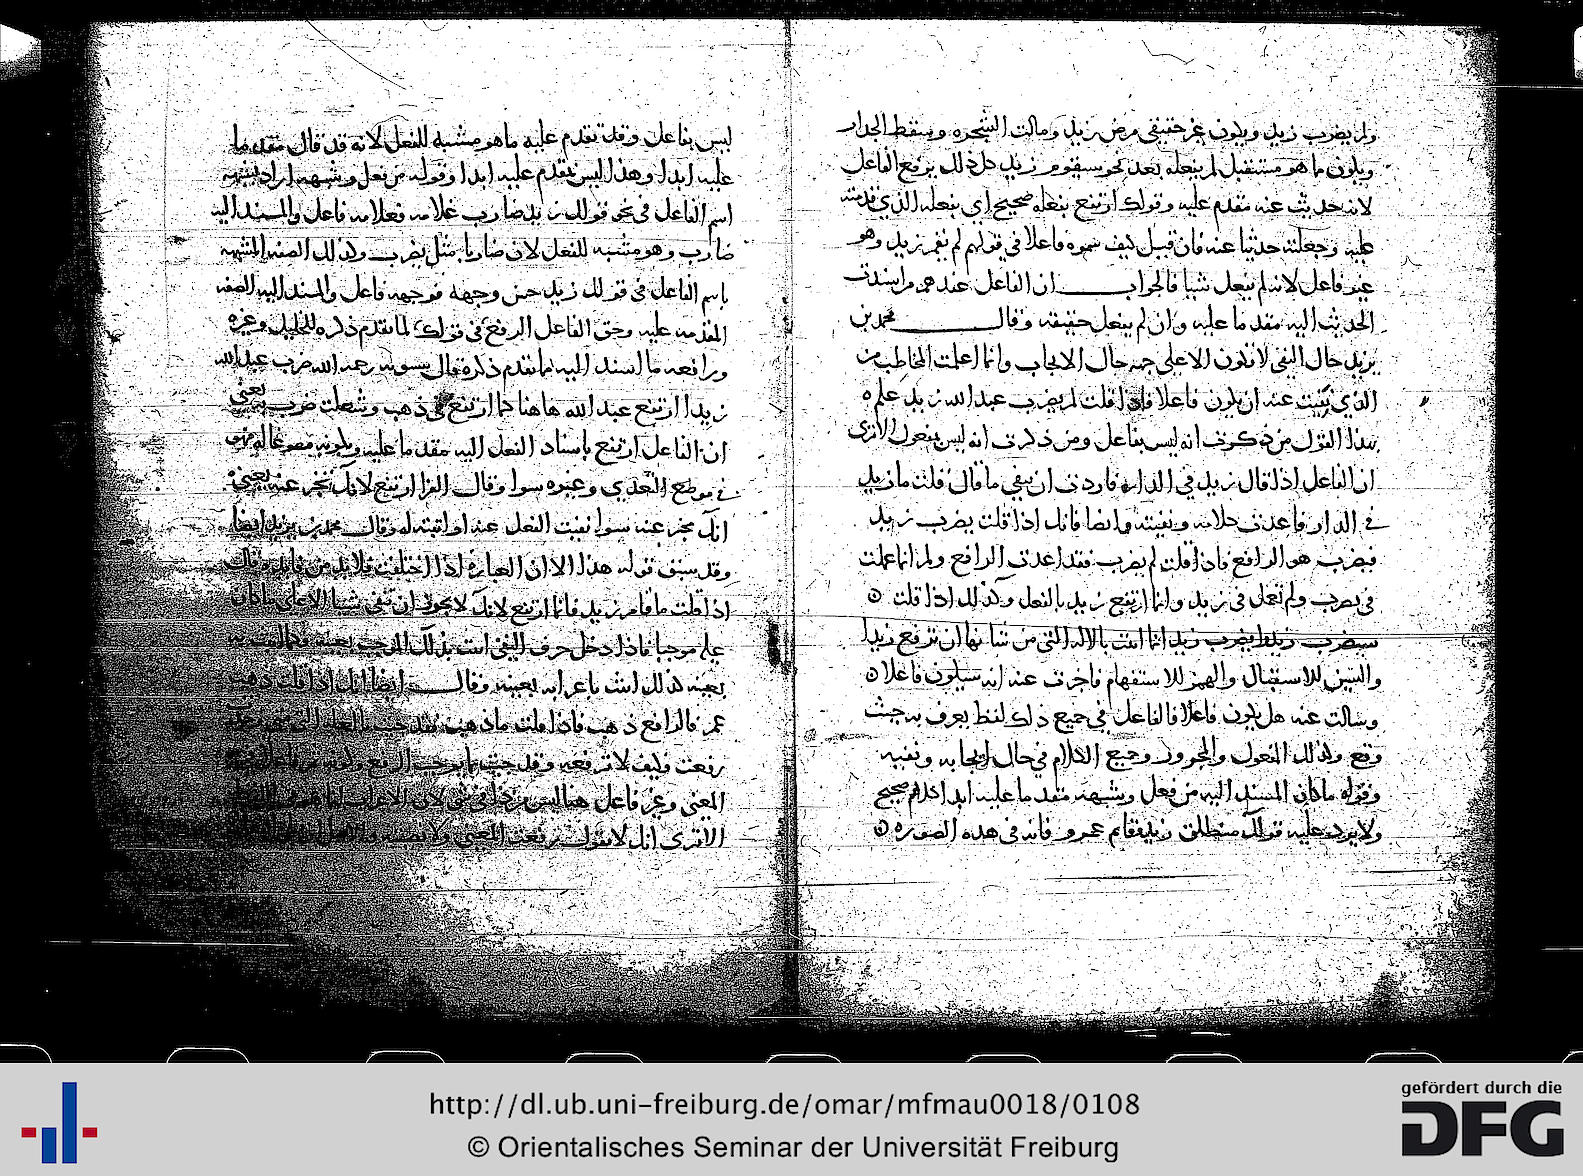 ولم يضرب زيد ويكون غير حقيقي مرض زيد ومالت الشجره وسقط الجدار
ويكون ما هو مستقبل لم يفعله بعد نحو سيقوم زيد كل ذلك يرفع الفاعل
لانه حديث عنه متقدم عليه وقولك ارتفع بفعله صحيح اي بفعله الذي قدمته
عليه وجعلته حديثا عنه فان قيل كيف سموه فاعلا في قولهم لم يقم زيد وهو
غير فاعل لانه لم يفعل شيا فالجواب ان الفاعل عندهم من اسندت
الحديث اليه مقدما عليه وان لم يفعل حقيقه وقال محمد بن
يزيد حال النفي لا تكون الا على جهه حال الايجاب وانما اعلمت المخاطب من
الذي عنده ان يكون فاعلا فاذا قلت لم يضرب عبد الله زيد علم
بهذا القول من ذكرت انه ليس بفاعل ومن ذكرت انه ليس بمفعول الا ترى
ان الفاعل اذا قال زيد في الدار فاردت ان تنفي ما قال قلت ما زيد
في الدار فاعدت كلامه ونفيته وايضا فانك اذا قلت يضرب زيد
فيضرب هو الرافع فاذا قلت لم يضرب فقد اعدت الرافع ولم انما عملت
في يضرب ولم تعمل في زيد وانما ارتفع زيد بالفعل وكذلك اذا قلت
سيضرب زيد ايضرب زيد انما اتت بالاله التي من شانها ان ترفع زيدا
والسين للاستقبال والهمز للاستفهام فاخبرت عنه انه سيكون فاعلا
وسالت عنه هل يكون فاعلا فالفاعل في جميع ذلك لفظ يعرف به حيث
وقع وكذلك المفعول والمجرور وجميع الكلام في حال ايجابه ونفيه
وقوله ما كان المسند اليه من فعل وشبهه مقدما عليه ابدا كلام صحيح
ولا يرد عليه قولك منطلق زيد فقايم عمرو فانه في هذه الصوره
ليس بفاعل وقد تقدم عليه ما هو مشبه للفعل لانه قد قال مقدما
عليه ابدا وهذا ليس يتقدم عليه ابدا وقوله من فعل وشبهه اراد بشبهه
اسم الفاعل في نحو قولك زيد ضارب غلامه فغلامه فاعل والمسند اليه
ضارب وهو مشبه للفعل لان ضاربا مثل يضرب وكذلك الصفه المشبهه
باسم الفاعل في قولك زيد حسن وجهه فوجهه فاعل والمسند اليه الصفه
المقدمه عليه وحق الفاعل الرفع في قولك لما تقدم ذكره للخليل وغيره
ورافعه ما اسند اليه لما تقدم ذكره قال سيبويه رحمه الله ضرب عبد الله
زيدا ارتفع عبد الله هاهنا كما ارتفع في ذهب وشغلت ضرب يعني
ان الفاعل ارتفع باسناد الفعل اليه مقدما عليه ويكونه مصوغا له
في موضع التعدي وغيره سوا وقال الفرا ارتفع لانك تخبر عنه يعني
انك تخبر عنه سوا نفيت الفعل عنه او اثبته له وقال محمد بن يزيد ايضا
وقد سبق قوله هذا الا ان العباره اذا اختلفت فلا بد من فايده وقال
اذا قلت ما قام زيد فانما ارتفع لانك لا يجوز ان تنفي شيا الا على ما كان
عليه موجبا فاذا دخل حرف النفي اتيت بذلك الموجب بعينه
بعينه كذلك اتيت باعرابه بعينه وقال ايضا انك اذا قلت ذهب
عمر فالرافع ذهب فاذا قلت ما ذهب فقد جيت
رفعت وكيف لا ترفعه وقد جيت بما يوجب الرفع
المعنى وغير فاعل هنا ليس
الا ترى انك لا تقول رفعت المعنى
http://dl.ub.uni-freiburg.de/omar/mfmau0018/0108
© Orientalisches Seminar der Universität Freiburg
gefördert durch die
DFG